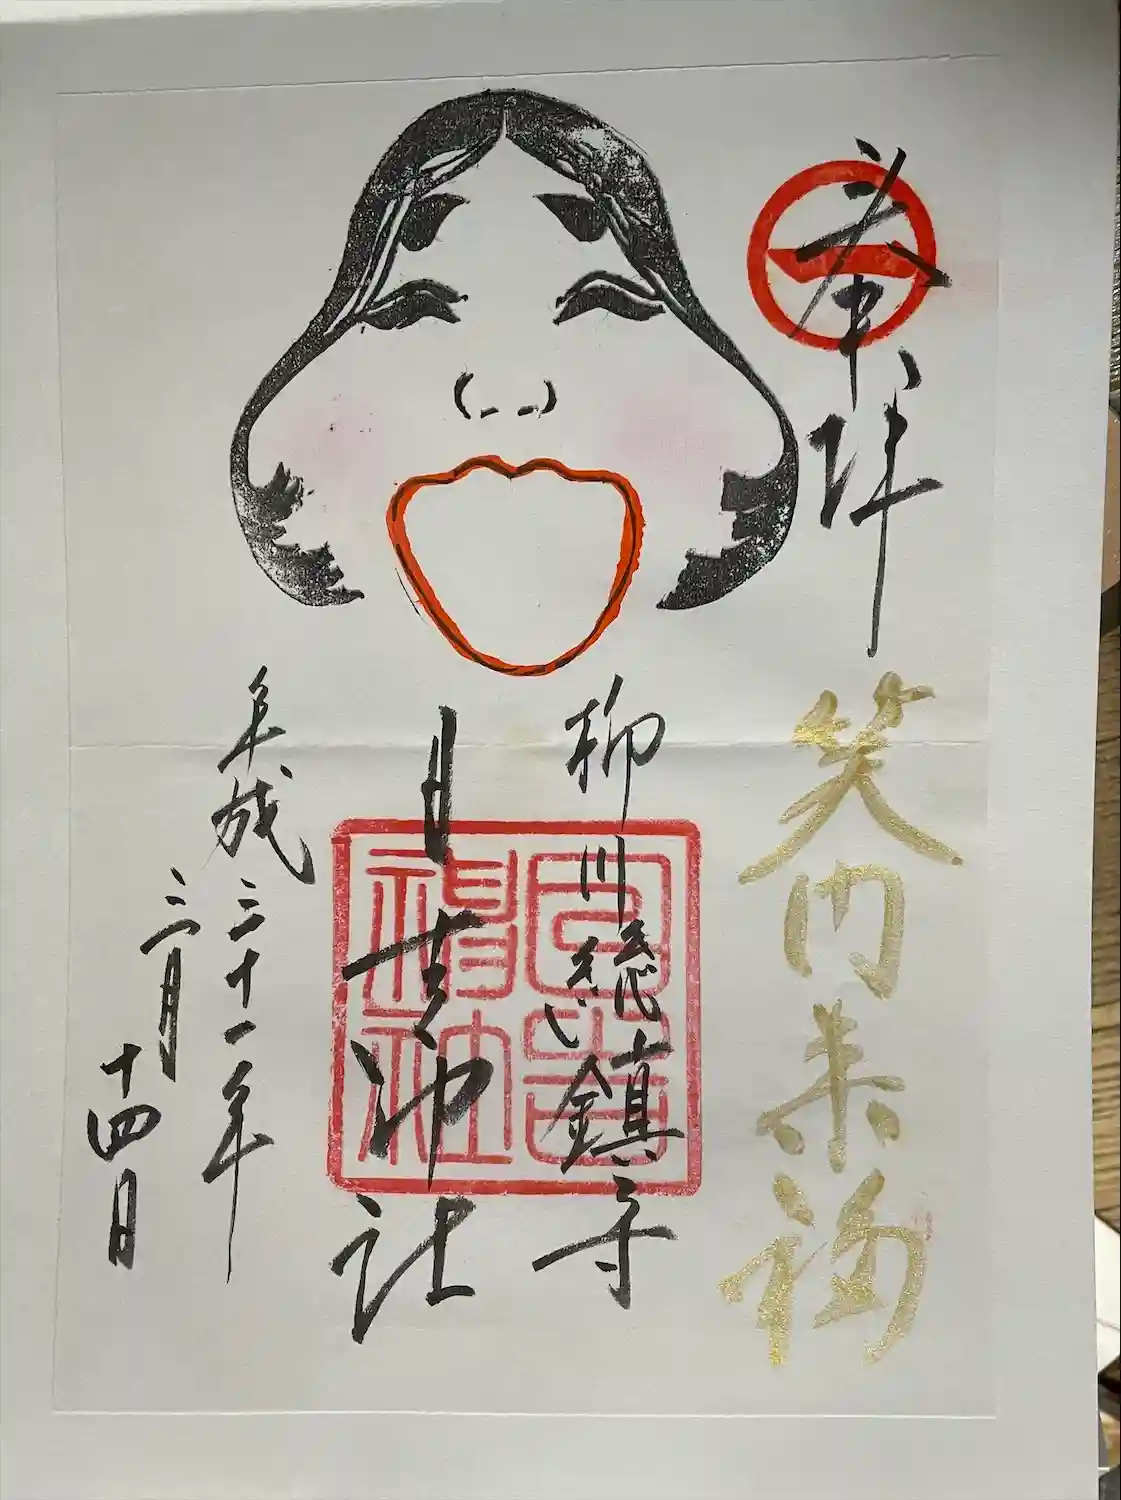 奉拝
笑門来福
柳川総鎮守
日吉神社
日吉神社
平成三十一年
三月
十四日